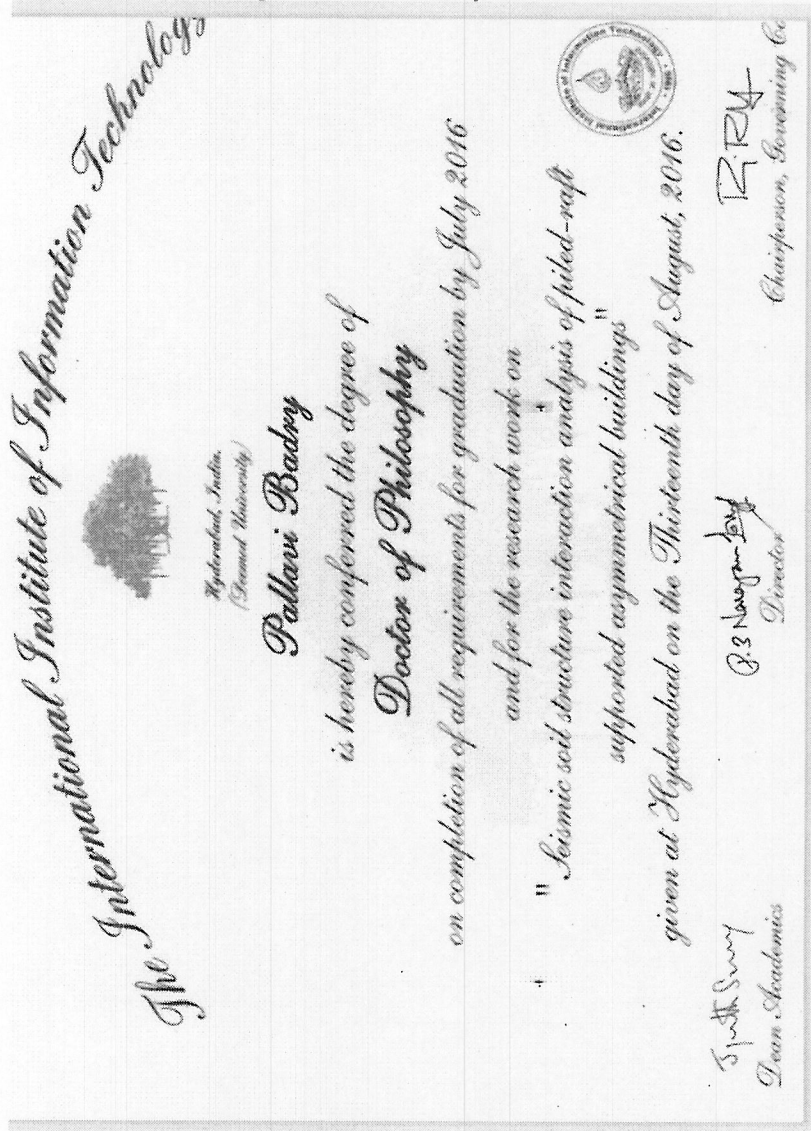 The International Institute of Information Technology
Hyderabad, India.
(Deemed University)
Pallavi Badry
is hereby conferred the degree of
Doctor of Philosophy
on completion of all requirements for graduation by July 2016
and for the research work on
" Seismic soil structure interaction analysis of piled-raft
supported asymmetrical buildings"
given at Hyderabad on the Thirteenth day of August, 2016.
International Institute of Information Technology
Dean Academics
Director
Chairperson, Governing Co